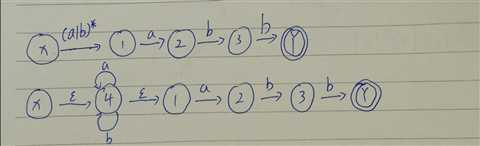 X (a|b)* 1 a 2 b 3 b Y
a
X ε 4 ε 1 a 2 b 3 b Y
b